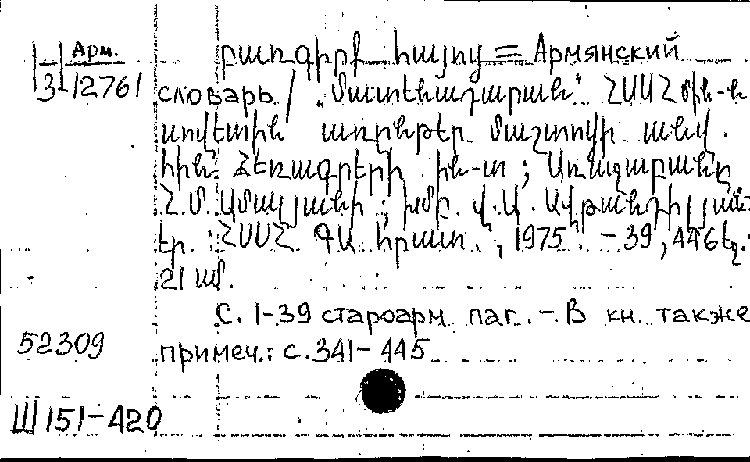 Арм.
3-12761
բառգիրք հայոց = Армянский
словарь / "Մատենադարան" ՀՍՍՀ մին-ի
սովետին առընթեր Մաշտոցի անվ.
հին ձեռագրերի ին-տ ; Առաջաբանը
Հ.Մ. Ամալյանի ; խմբ.
Եր. : ՀՍՍՀ ԳԱ հրատ., 1975. - 39, 446 էջ. :
21 սմ.
С. 1-39 староарм. паг. - В кн. также
52309
примеч.: с. 341-445
Ш 151-420